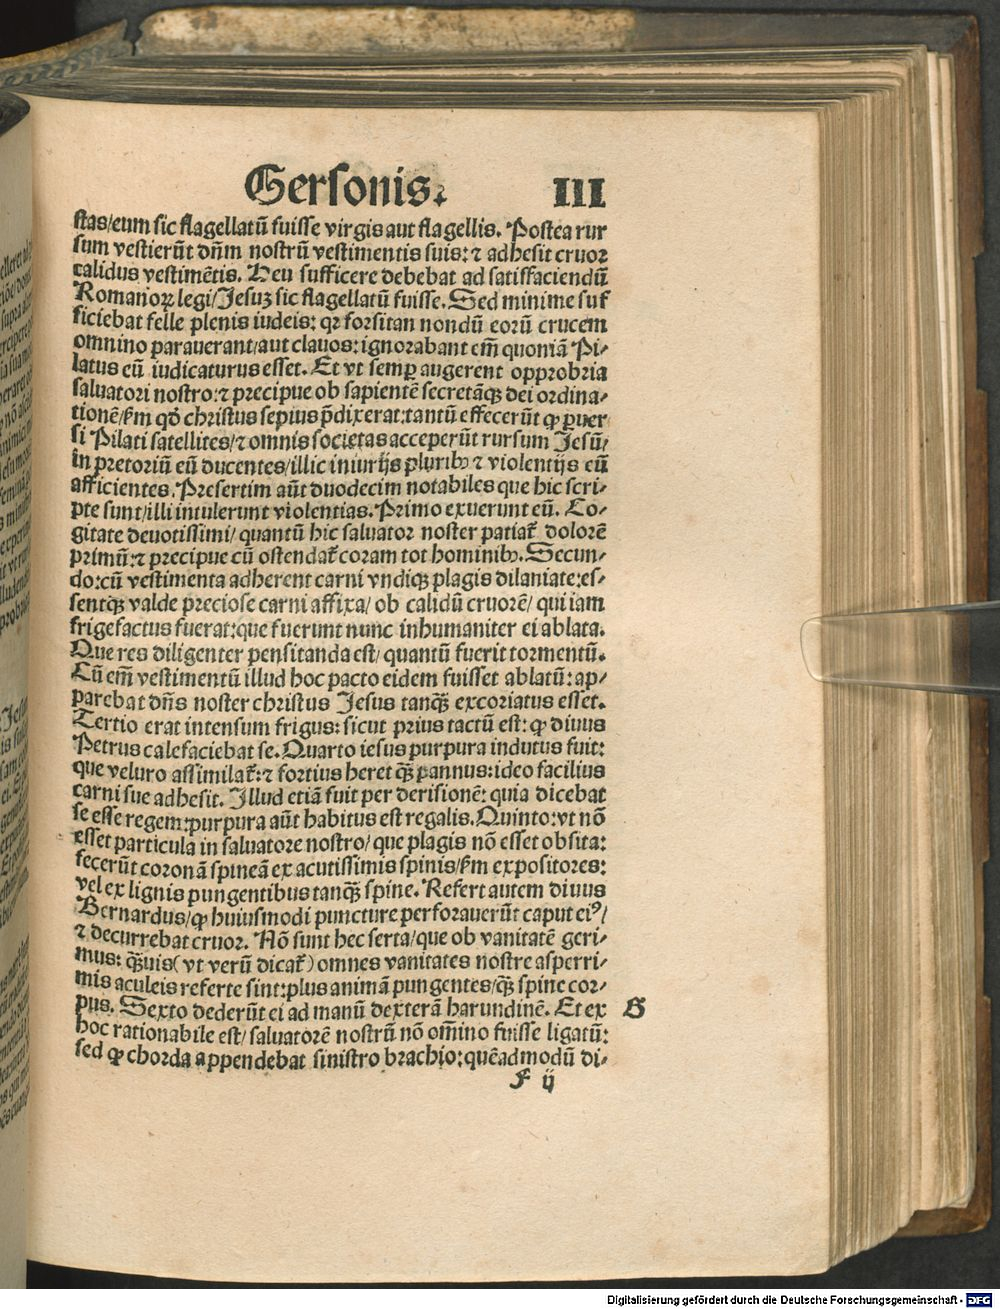 Gersonis. III
stas/eum sic flagellatū fuisse virgis aut flagellis. Postea rur
sum vestierūt dn̄m nostrū vestimentis suis: ⁊ adhesit cruor
calidus vestimētis. Heu sufficere debebat ad satisfaciendū
Romanoꝝ legi/Jesuꝫ sic flagellatū fuisse. Sed minime suf
ficiebat felle plenis iudeis: qꝛ forsitan nondū eorū crucem
omnino parauerant/aut clauos: ignorabant em̄ quoniā Pi-
latus eū iudicaturus esset. Et vt semꝑ augerent opprobria
saluatori nostro: ⁊ precipue ob sapientē secretāqꝫ dei ordina-
tionē/ẜm qđ christus sepius p̄dixerat: tantū effecerūt ꝙ ꝑuer
si Pilati satellites/⁊ omnis societas acceperūt rursum Jesū/
in pretoriū eū ducentes/illic iniurijs pluribꝰ ⁊ violentijs eū
afficientes. Presertim aūt duodecim notabiles que hic scri-
pte sunt/illi intulerunt violentias. Primo exuerunt eū. Co-
gitate deuotissimi/ quantū hic saluator noster patiat᷑ dolorē
primū: ⁊ precipue cū ostendat᷑ coram tot hominibꝰ. Secun-
do: cū vestimenta adherent carni vndiqꝫ plagis dilaniate: es-
sentqꝫ valde preciose carni affixa/ ob calidū cruorē/ qui iam
frigefactus fuerat: que fuerunt nunc inhumaniter ei ablata.
Que res diligenter pensitanda est/ quantū fuerit tormentū.
Cū em̄ vestimentū illud hoc pacto eidem fuisset ablatū: ap-
parebat dn̄s noster christus Jesus tanqꝫ̄ excoriatus esset.
Tertio erat intensum frigus: sicut prius tactū est: ꝙ diuus
Petrus calefaciebat se. Quarto iesus purpura indutus fuit:
que veluro assimilat᷑: ⁊ fortius heret qꝫ̄ pannus: ideo facilius
carni sue adhesit. Illud etiā fuit per derisionē: quia dicebat
se esse regem: purpura aūt habitus est regalis. Quinto: vt nō
esset particula in saluatore nostro/ que plagis nō esset obsita:
fecerūt coronā spineā ex acutissimis spinis/ẜm expositores:
vel ex lignis pungentibus tanqꝫ̄ spine. Refert autem diuus
Bernardus/ꝙ huiusmodi puncture perforauerūt caput eiꝰ/
⁊ decurrebat cruor. Nō sunt hec serta/que ob vanitatē geri-
mus: qꝫ̄uis (vt verū dicat᷑) omnes vanitates nostre asperri-
mis aculeis referte sint: plus animā pungentes/qꝫ̄ spine cor-
pus. Sexto dederūt ei ad manū dexterā harundinē. Et ex G
hoc rationabile est/ saluatorē nostrū nō om̄ino fuisse ligatū:
sed ꝙ chorda appendebat sinistro brachio: quēadmodū di-
F ij
Digitalisierung gefördert durch die Deutsche Forschungsgemeinschaft - DFG